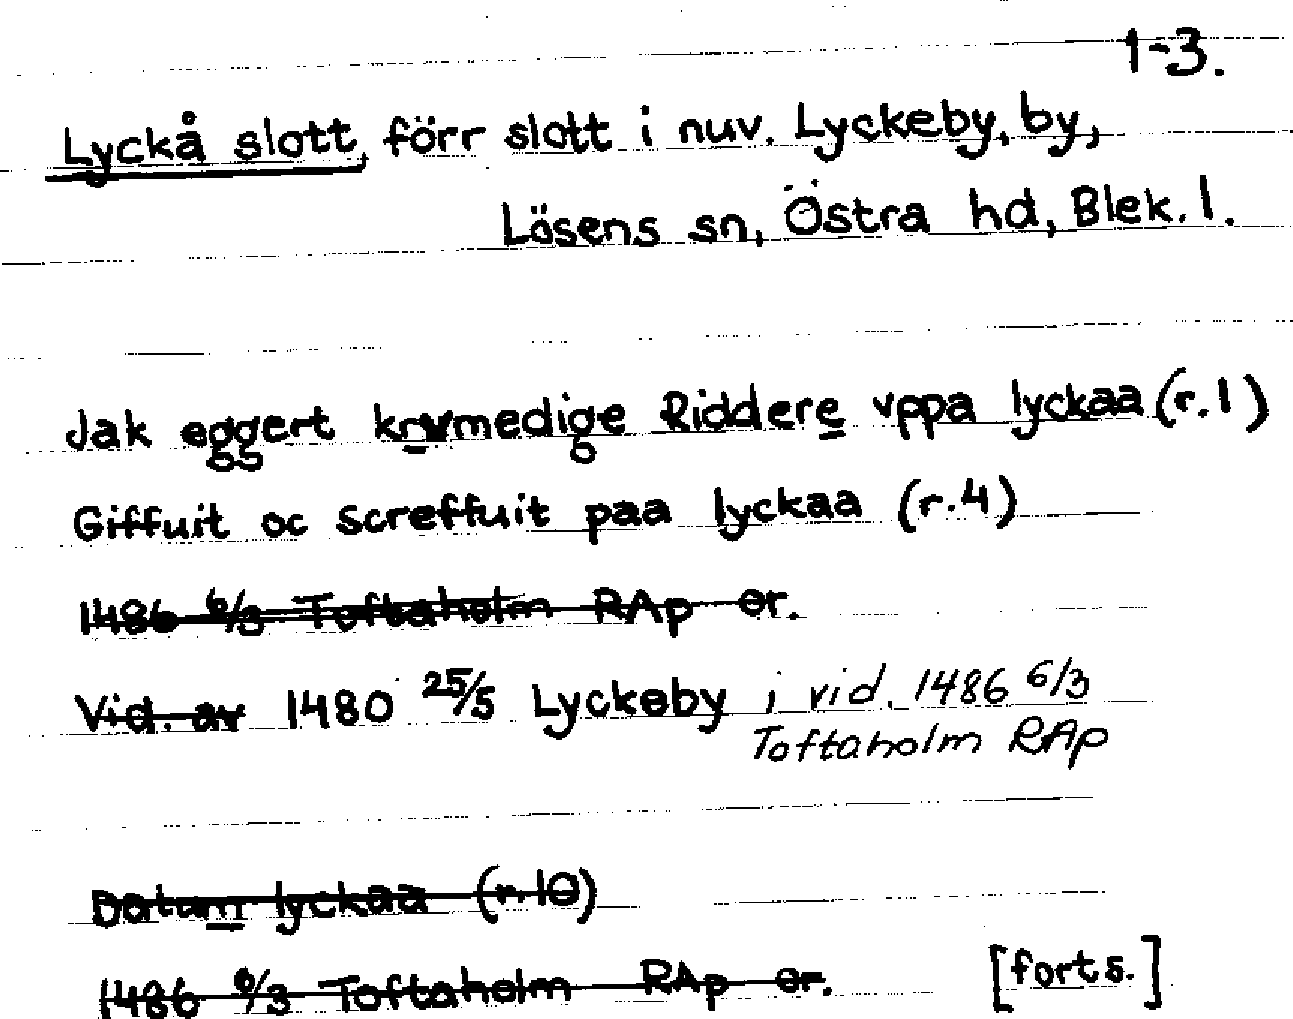 1-3.
Lyckå slott, förr slott i nuv. Lyckeby, by,
Lösens sn, Östra hd, Blek. l.
Jak eggert krvmedige Riddere vppa lyckaa (r.1)
Giffuit oc screffuit paa lyckaa (r.4)
1486 6/3 Toftaholm RAp or.
Vid. av 1480 25/5 Lyckeby i vid. 1486 6/3
Toftaholm RAp
Datum lyckaa (r.10)
1486 6/3 Toftaholm RAp or.
[forts.]